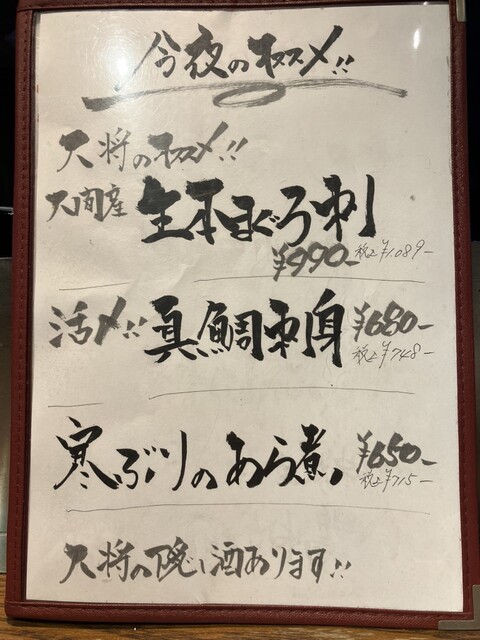 今夜のオススメ!!
大将のオススメ!!
大間産 生本まぐろ刺
¥990- 税込¥1,089-
活〆!! 真鯛刺身 ¥680-
税込¥748-
寒ぶりのあら煮。 ¥650-
税込¥715-
大将の隠し酒あります!!